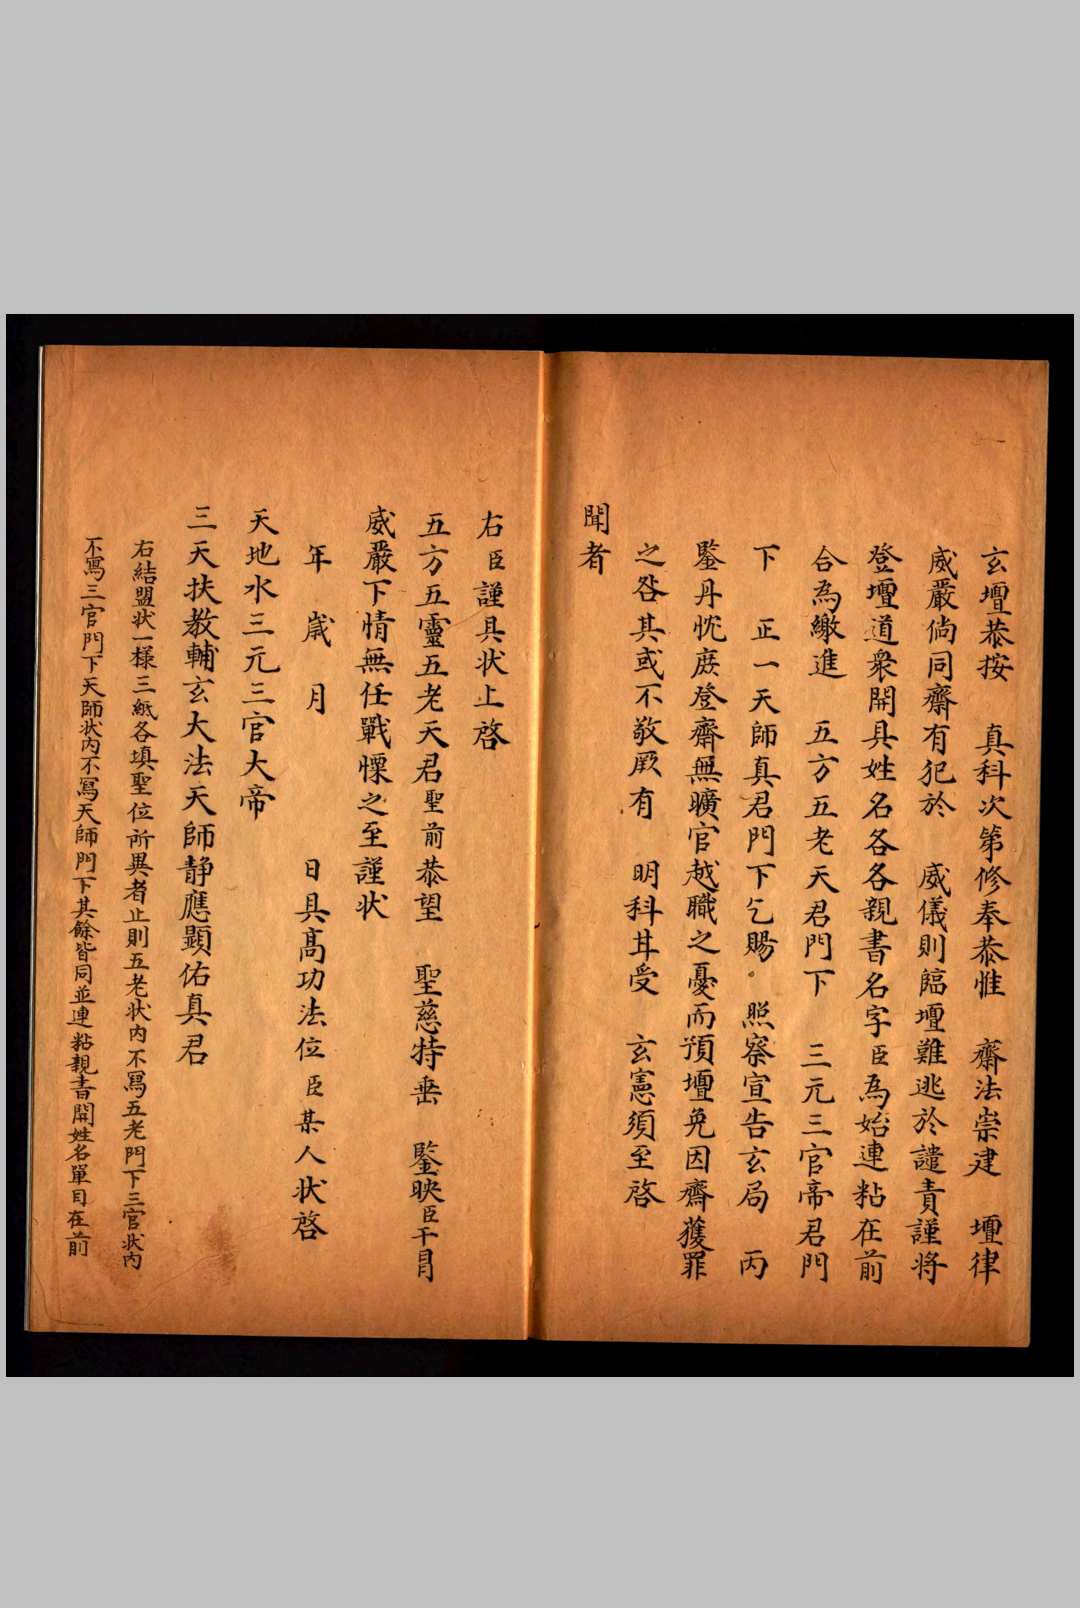 玄壇恭按　真科次第修奉恭惟　齋法崇建　壇律
威嚴倘同齋有犯於　威儀則臨壇難逃於譴責謹將
登壇道衆開具姓名各各親書名字臣為始連粘在前
合為繳進　五方五老天君門下　三元三官帝君門
下　正一天師真君門下乞賜。照察宣告玄局　丙
鑒丹忱庶登齋無曠官越職之憂而預壇免因齋獲罪
之咎其或不敬厥有　明科幷受　玄憲須至啓
聞者
右臣謹具状上啓
五方五靈五老天君聖前恭望　聖慈特垂　鑒映臣干冒
威嚴下情無任戰慄之至謹状
年　歲　月　　日具高功法位臣某人状啓
天地水三元三官大帝
三天扶教輔玄大法天師静應顯佑真君
右結盟状一樣三紙各填聖位所異者止則五老状内不寫五老門下三官状内
不寫三官門下天師状内不寫天師門下其餘皆同並連粘親書開姓名單目在前